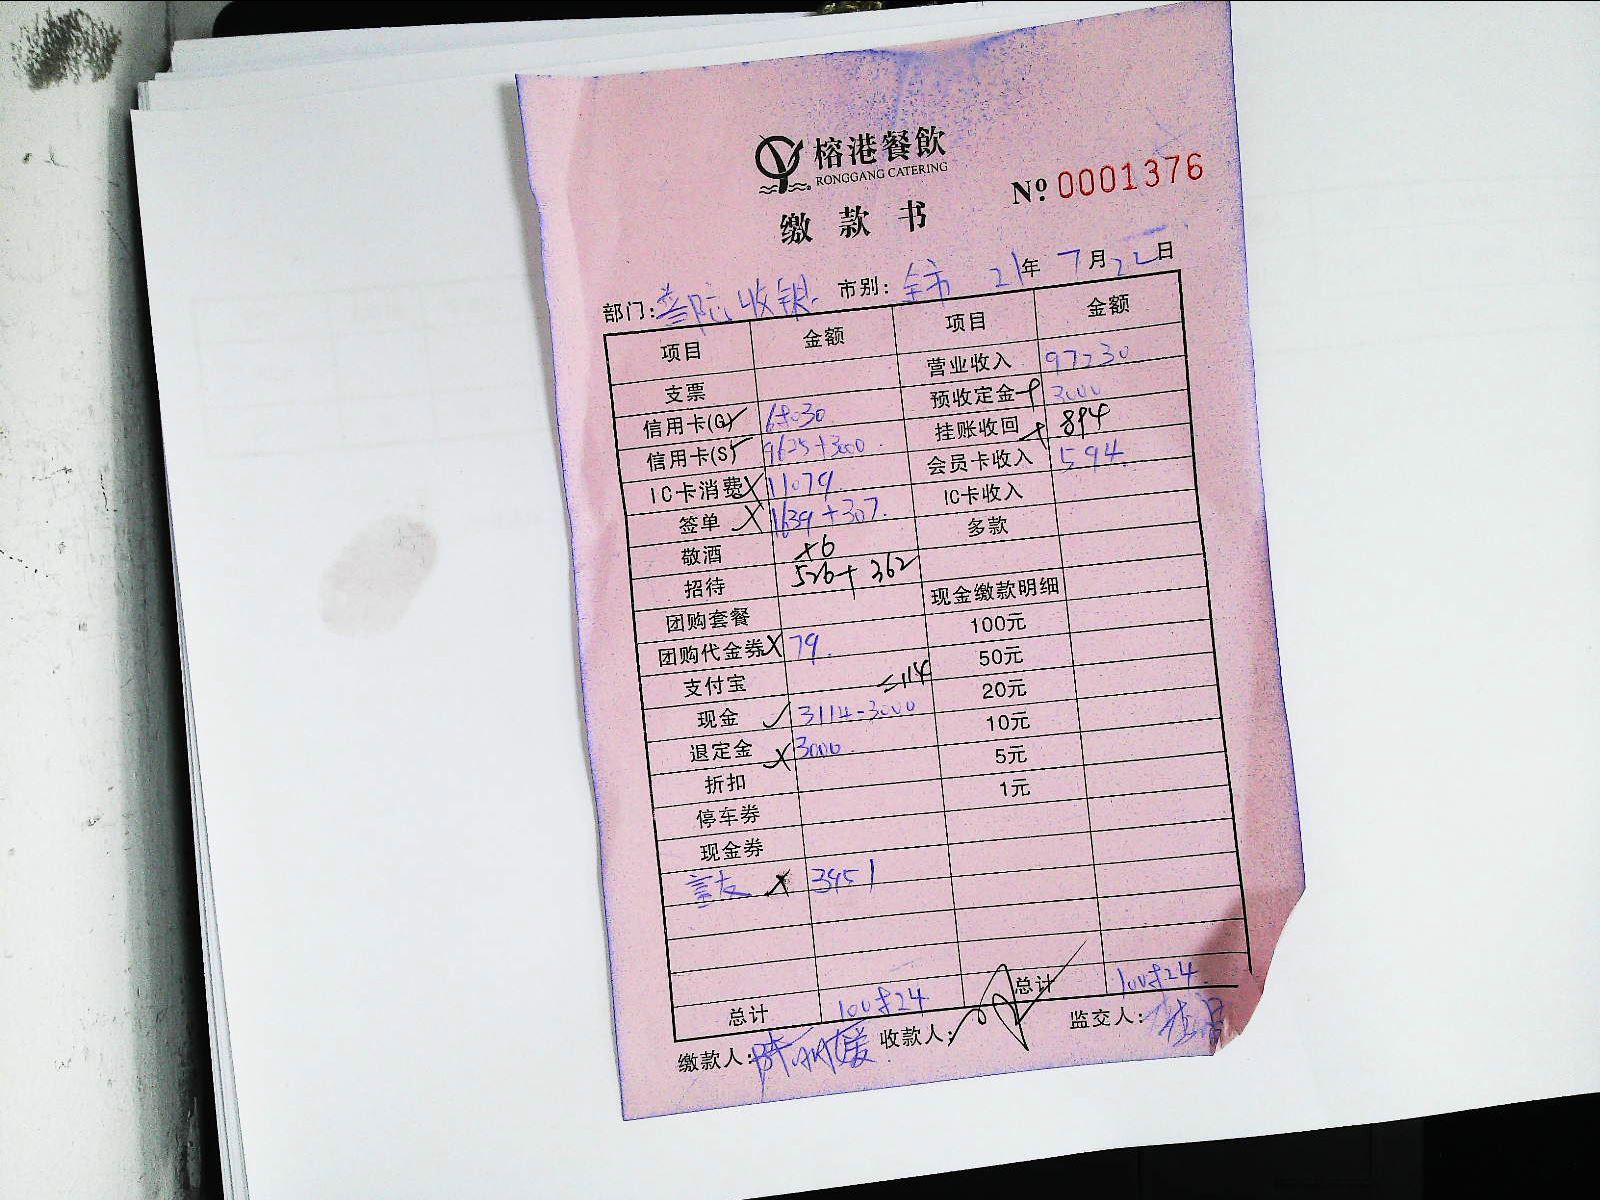 榕港餐飲
RONGGANG CATERING
Nº 0001376
缴款书
部门: 收银 市别: 全市 21年 7月22日
项目 金额 项目 金额
支票 营业收入 97230
信用卡(G) 预收定金 3000
信用卡(S) 9625+3000 挂账收回 894
IC卡消费 11079 会员卡收入 594
签单 1639+307 IC卡收入
敬酒 多款
招待 526+362
团购套餐 现金缴款明细
团购代金券 79 100元
支付宝 =114 50元
现金 3114-3000 20元
退定金 3000 10元
折扣 5元
停车券 1元
现金券
3951
总计 总计
缴款人: 收款人: 监交人: